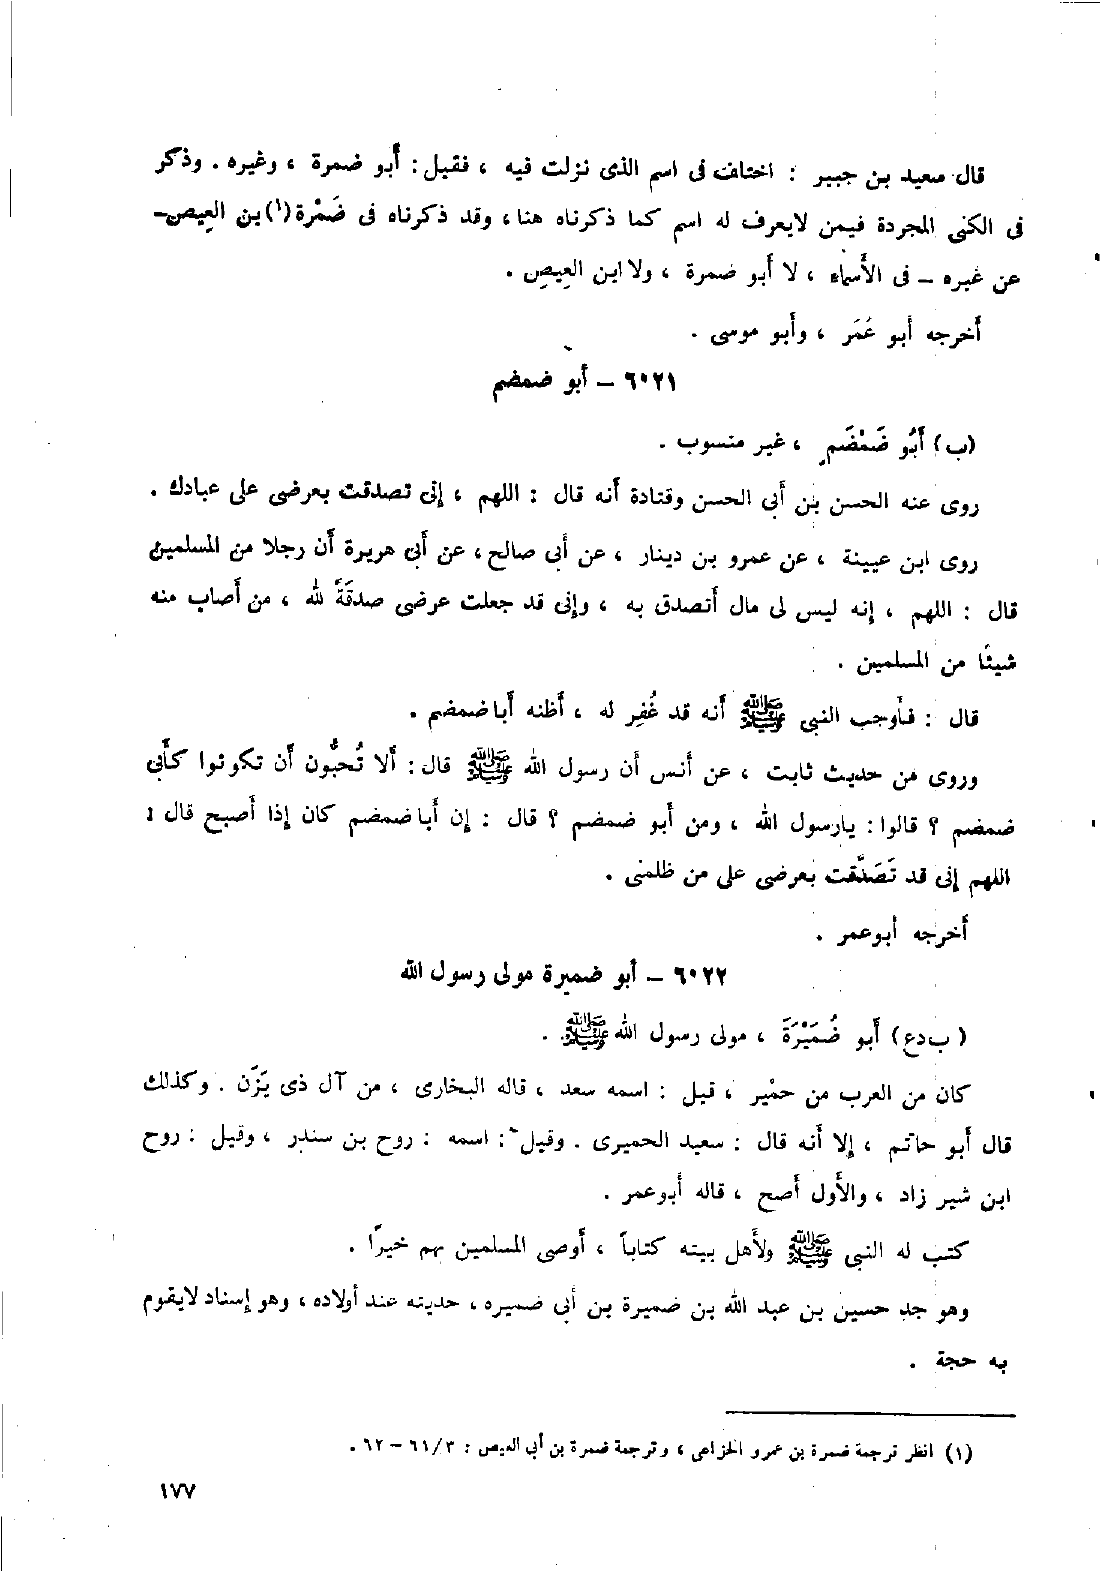 قال سعيد بن جبير : اختلف فى اسم الذى نزلت فيه ، فقيل : أبو ضمرة ، وغيره . وذكر
فى الكنى المجردة فيمن لايعرف له اسم كما ذكرناه هنا ، وقد ذكرناه فى ضَمْرة(١) بن العِيص–
عن غيره – فى الأسماء ، لا أبو ضمرة ، ولا ابن العِيص .
أخرجه أبو عُمَر ، وأبو موسى .
٦٠٢١ – أبو ضمضم
(ب) أَبُو ضَمْضَم ، غير منسوب .
روى عنه الحسن بن أبى الحسن وقتادة أنه قال : اللهم ، إنى تصدقت بعرضى على عبادك .
روى ابن عيينة ، عن عمرو بن دينار ، عن أبى صالح ، عن أبى هريرة أن رجلا من المسلمين
قال : اللهم ، إنه ليس لى مال أتصدق به ، وإنى قد جعلت عرضى صدقَةً لله ، من أصاب منه
شيئًا من المسلمين .
قال : فأوجب النبى ﷺ أنه قد غُفِر له ، أظنه أبا ضمضم .
وروى من حديث ثابت ، عن أنس أن رسول الله ﷺ قال : ألا تُحبُّون أن تكونوا كأبى
ضمضم ؟ قالوا : يارسول الله ، ومن أبو ضمضم ؟ قال : إن أبا ضمضم كان إذا أصبح قال :
اللهم إنى قد تَصَدَّقت بعرضى على من ظلمنى .
أخرجه أبو عمر .
٦٠٢٢ – أبو ضميرة مولى رسول الله
( ب د ع ) أَبو ضُمَيْرَةَ ، مولى رسول الله ﷺ .
كان من العرب من حمْير ، قيل : اسمه سعد ، قاله البخارى ، من آل ذى يَزَن . وكذلك
قال أبو حاتم ، إلا أنه قال : سعيد الحميرى . وقيل : اسمه : روح بن سندر ، وقيل : روح
ابن شير زاد ، والأول أصح ، قاله أبو عمر .
كتب له النبى ﷺ ولأهل بيته كتاباً ، أوصى المسلمين بهم خيرًا .
وهو جد حسين بن عبد الله بن ضميرة بن أبى ضميره ، حديثه عند أولاده ، وهو إسناد لايقوم
به حجة .
(١) انظر ترجمة ضمرة بن عمرو الخزاعى ، وترجمة ضمرة بن أبى العيص : ٣/ ٦١ – ٦٢ .
١٧٧